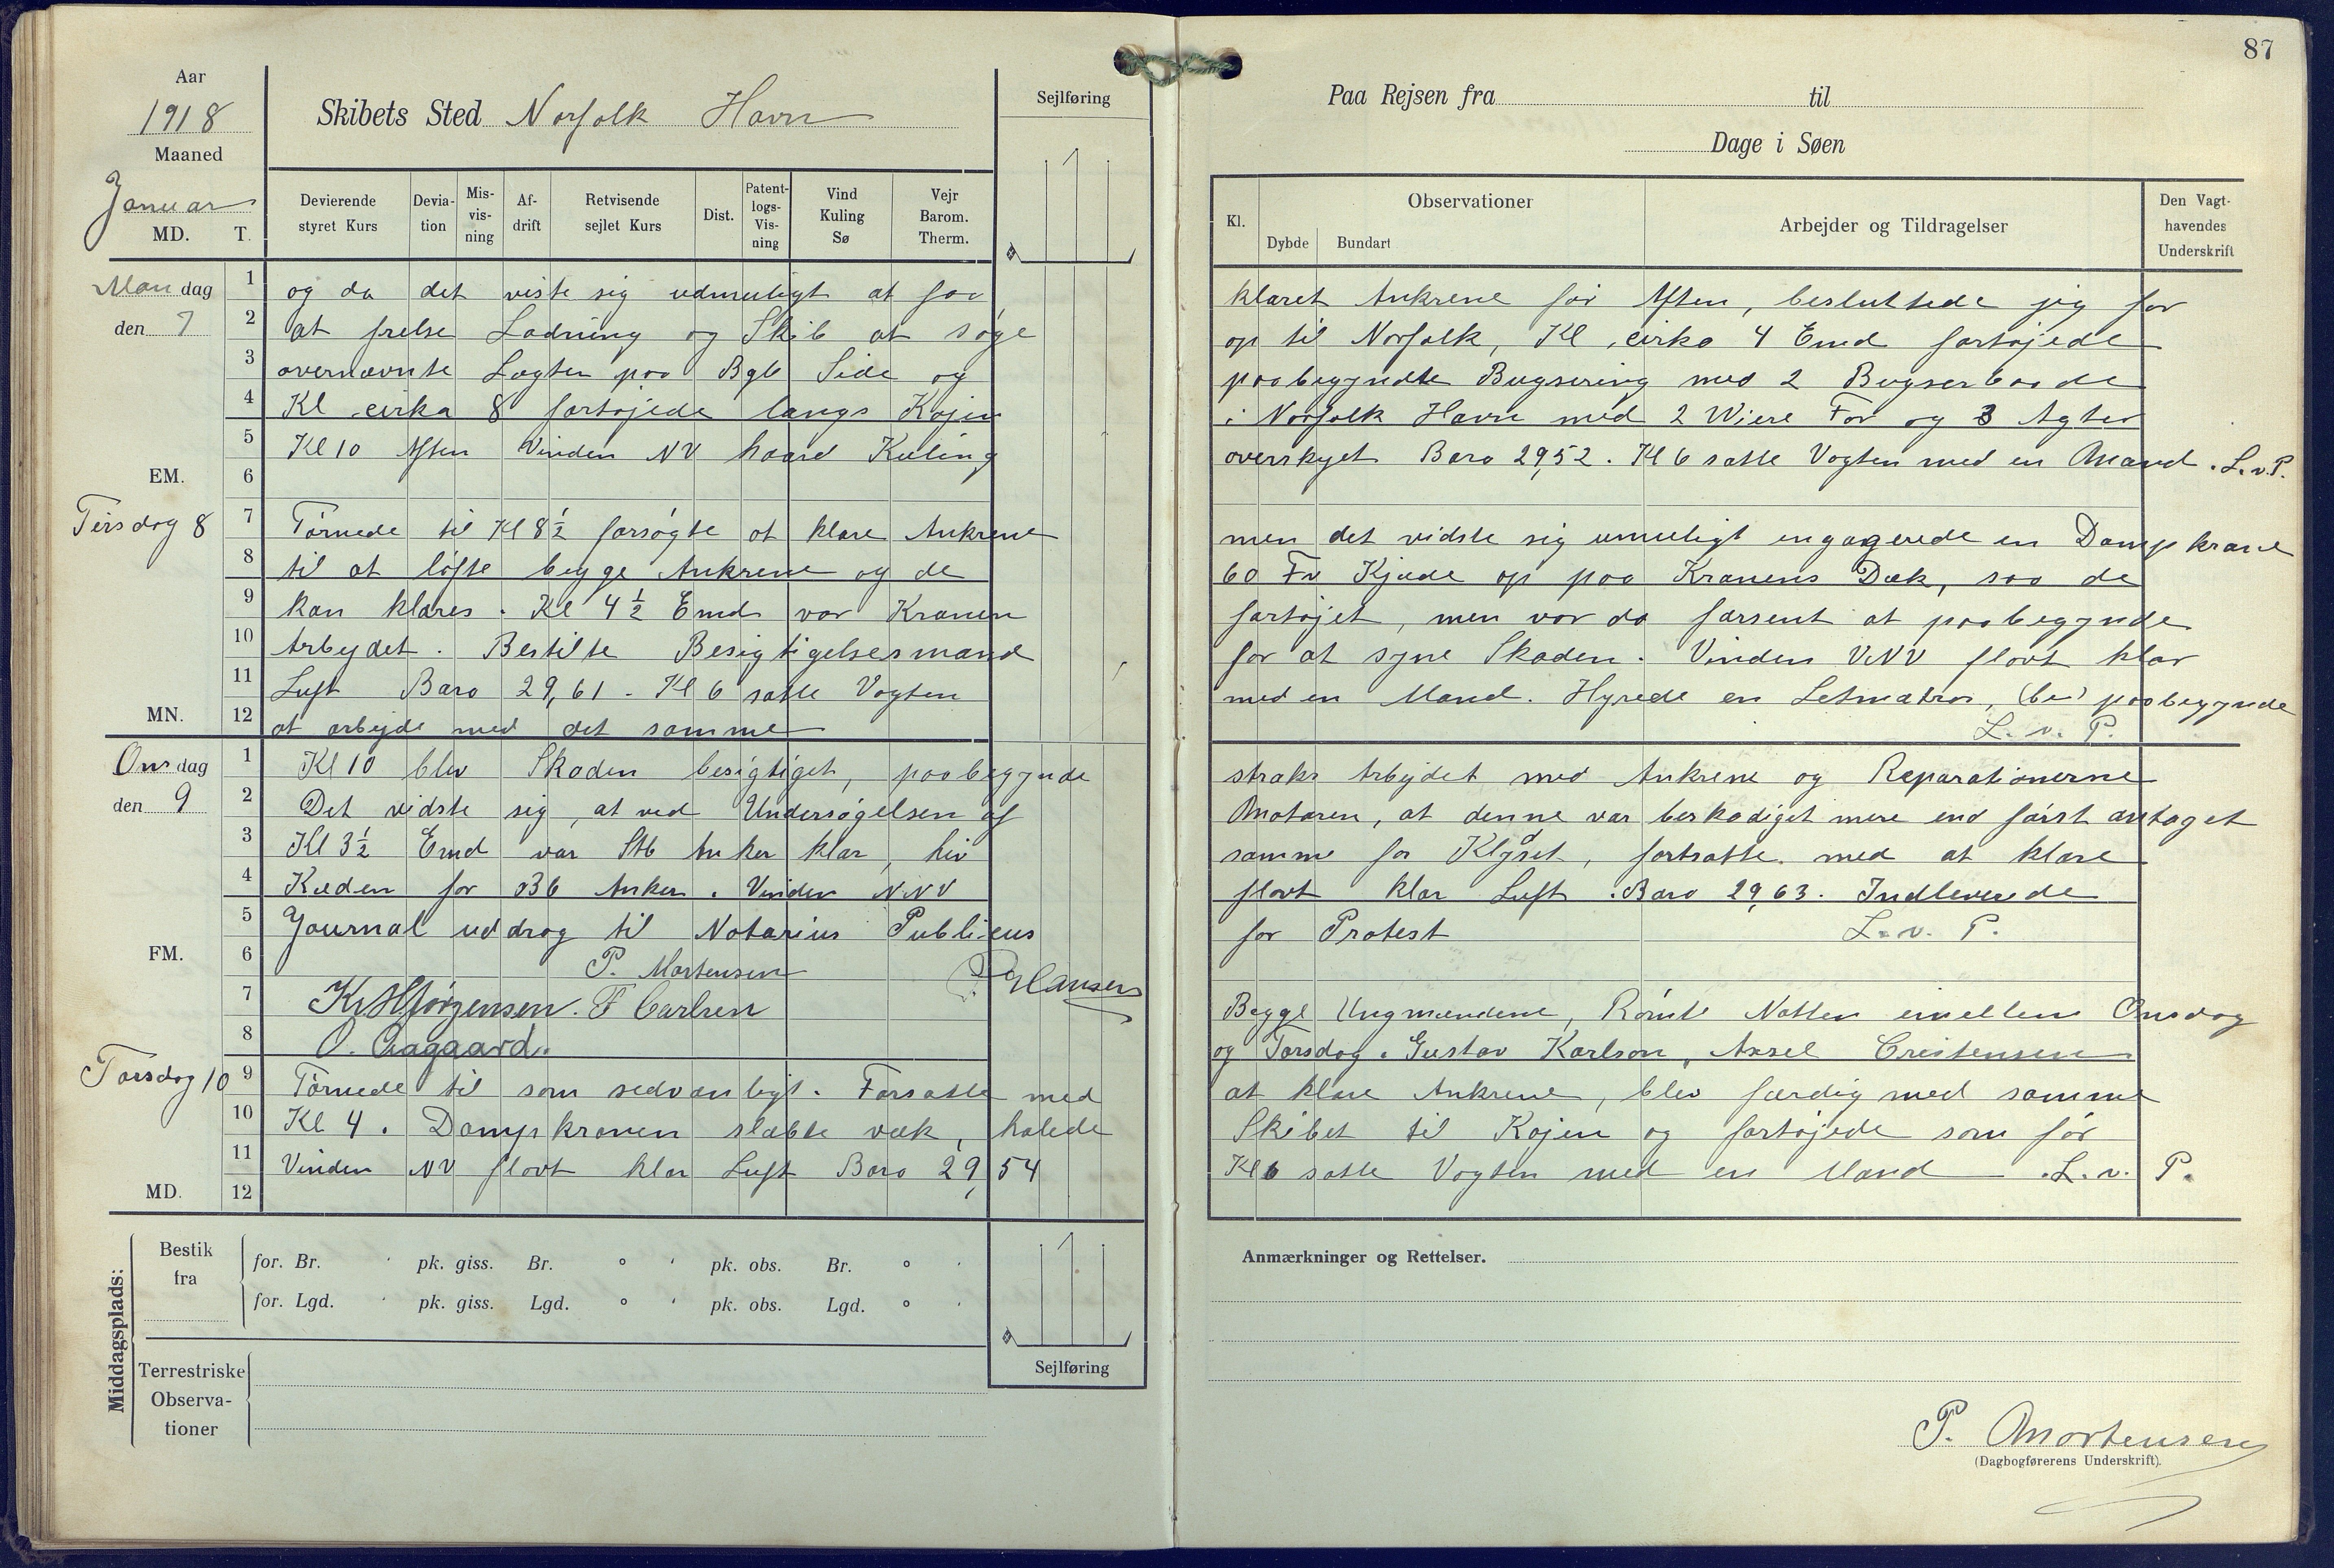 87
Aar
1918
Maaned
Januar
MD. T.
Skibets Sted Norfolk Havn
Sejlføring
Devierende styret Kurs
Devia-tion
Mis-vis-ning
Af-drift
Retvisende sejlet Kurs
Dist.
Patent-logs-Vis-ning
Vind Kuling Sø
Vejr Barom. Therm.
Paa Rejsen fra til
Dage i Søen
Kl.
Observationer
Dybde Bundart
Arbejder og Tildragelser
Den Vagt-havendes Underskrift
Mandag
den 7
EM.
1 og da det viste sig udmuligt at faa klaret Ankrene før Aften, besluttede jeg for
2 at frelse Ladning og Skib at søge op til Norfolk, Kl cirka 4 Emd fortøjede
3 overnævnte Lægter paa Bgb Side og paabegyndte Bugsering med 2 Bugserbaade
4 Kl cirka 8 fortøjede langs Kajen i Norfolk Havn med 2 Wiere For og 3 Agter
5 Kl 10 Aften Vinden NV haard Kuling overskyet Baro 29,52. Kl 6 satte Vagten med en Mand. L.v.P.
6
Tirsdag 8
7 Tørnede til Kl 8½ forsøgte at klare Ankrene men det vidste sig umuligt engagerede en Dampkrane
8 til at løfte begge Ankrene og de 60 Fv Kjæde op paa Kranens Dæk, saa de
9 kan klares. Kl 4½ Emd var Kranen fortøjet, men var da forsent at paabegynde
10 Arbejdet. Bestilte Besigtigelsesmand for at syne Skaden. Vinden VNV flovt klar
11 Luft Baro 29,61. Kl 6 satte Vagten med en Mand. Hyrede en Letmatros, (be) paabegynde
MN.
12 at arbejde med det samme L. v. P.
Onsdag
den 9
FM.
1 Kl 10 blev Skaden besigtiget, paabegynde straks Arbejdet med Ankrene og Reparationerne
2 Det vidste sig, at ved Undersøgelsen af Motoren, at denne var beskadiget mere end først antaget
3 Kl 3½ Emd var Stb Anker klar, hiv samme for Klyset, fortsatte med at klare
4 Kæden for Bb Anker. Vinden NNV flovt klar Luft. Baro 29,63. Indleverede
5 Journal uddrag til Notarius Publicus for Protest L. v. P.
6 P. Mortensen
Hansen
7 Kr Hjørgensen. F Carlsen Begge Ungmændene, Rømte Natten imellem Onsdag
8 O. Aagaard. og Torsdag. Gustav Karlson, Axsel Creistensen
Torsdag 10
9 Tørnede til som sedvanligt. Forsatte med at klare Ankrene, blev færdig med samme
10 Kl 4. Dampkranen slæbte væk, halede Skibet til Kajen og fortøjede som før
11 Vinden NV flovt klar Luft Baro 29,54 Kl 6 satte Vagten med en Mand L. v. P.
MD.
12
Middagsplads:
Bestik fra
for. Br. ' pk. giss. Br. ° ' pk. obs. Br. ° '
for. Lgd. ' pk. giss. Lgd. ° ' pk. obs. Lgd. ° '
Terrestriske Observa-tioner
Sejlføring
Anmærkninger og Rettelser.
P. Mortensen
(Dagbogførerens Underskrift).